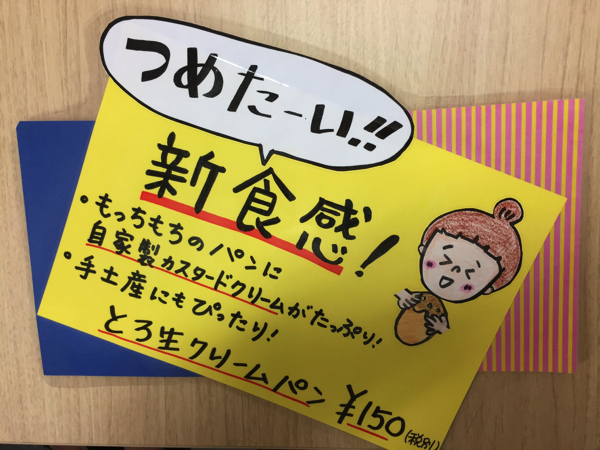 つめたーい!!
新食感!
・もっちもちのパンに
自家製カスタードクリームがたっぷり!
・手土産にもぴったり!
とろ生クリームパン ¥150(税別)